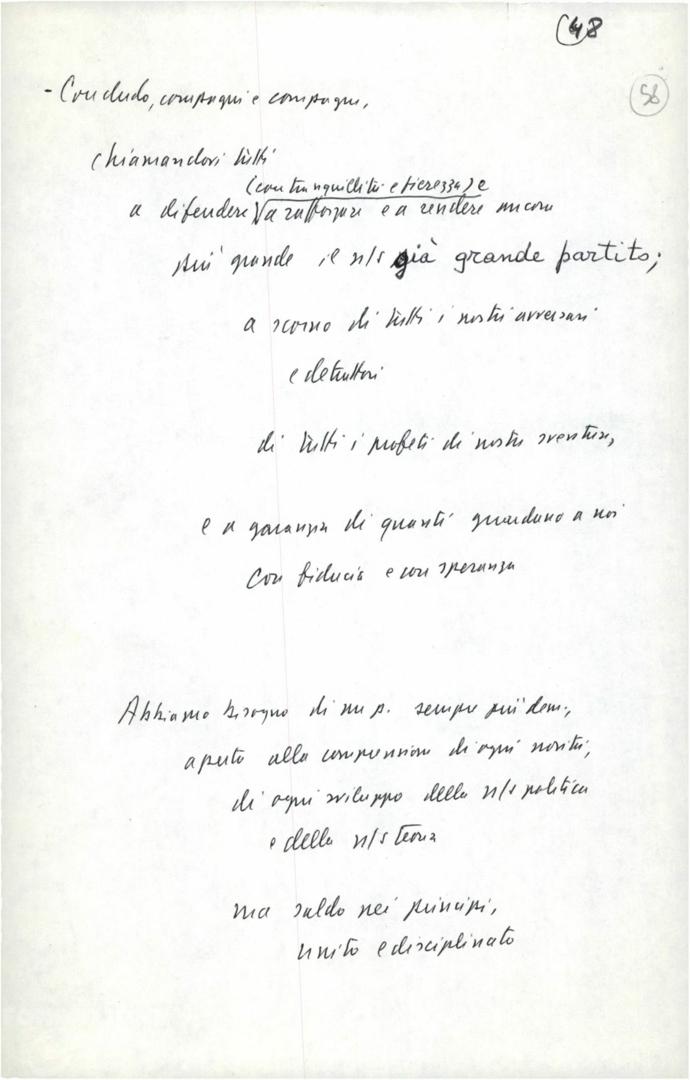 48
56
- Concludo, compagni e compagne,
chiamandovi tutti
(con tranquillità e fierezza) e
a difendere √ a rafforzare e a rendere ancora
più grande il n/s già grande partito;
a scorno di tutti i nostri avversari
e detrattori
di tutti i profeti di nostra sventura,
e a garanzia di quanti guardano a noi
con fiducia e con speranza
Abbiamo bisogno di un p. sempre più dem.,
aperto alla comprensione di ogni novità,
di ogni sviluppo della n/s politica
e della n/s teoria
ma saldo nei principi,
unito e disciplinato